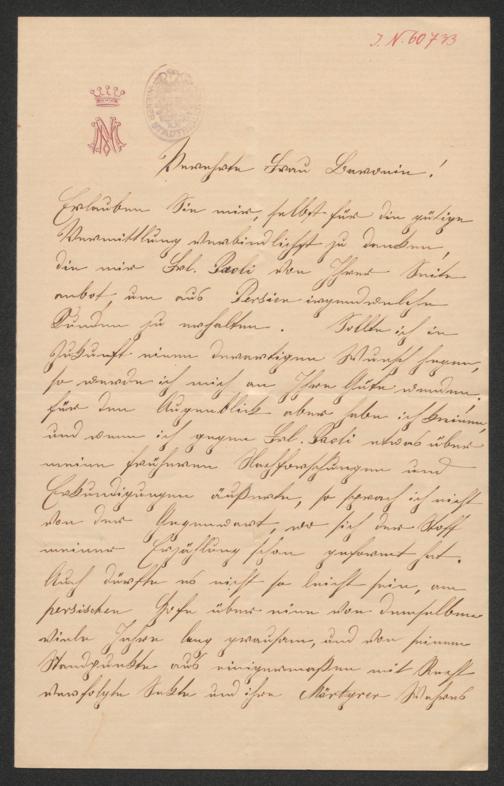 J. N. 60733
Verehrte Frau Baronin!
Erlauben Sie mir, selbst für die gütige
Vermittlung verbindlichst zu danken,
die mir Frl. Paoli von Ihrer Seite
anbot, um aus Persien irgendwelche
Kunden zu erhalten. Sollte ich in
Zukunft einen derartigen Wunsch hegen,
so werde ich mich an Ihre Güte wenden.
Für den Augenblick aber habe ich keinen,
und wenn ich gegen Frl. Paoli etwas über
meine früheren Nachforschungen und
Erkundigungen äußerte, so sprach ich nicht
von der Gegenwart, wo sich der Stoff
meiner Erzählung schon geformt hat.
Auch dürfte es nicht so leicht sein, am
persischen Hofe über eine von demselben
viele Jahre lang grausam, und von seinem
Standpunkte aus einigermaßen mit Recht
verfolgte Sekte und ihre Märtyrer Wahres